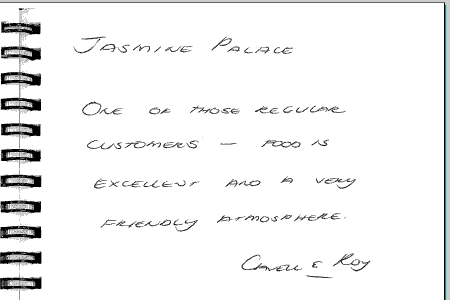 JASMINE PALACE
ONE OF THOSE REGULAR
CUSTOMERS – FOOD IS
EXCELLENT AND A VERY
FRIENDLY ATMOSPHERE.
& ROY